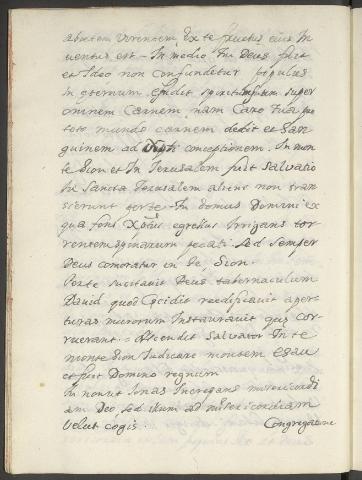 abietem virentem, Ex te fructus eius In
uentus est - In medio Tui Deus fuit
et Ideo non confundetur populus
In eternum. Effudit spiritum suum super
omnem Carnem, nam Caro Tua pro
toto mundo carnem dedit et San
guinem ad conceptionem. In mon
te Sion et In Jerusalem fuit Salvatio
In Sancta Jerusalem alieni non tran
sierunt porte. In domus Domini ex
qua fons Xptus egressus Irrigans tor
rentem spinarum peccati. Sed semper
Deus comoratur in te, Sion.
Porte sucitavit Deus tabernaculum
David quod Cecidit reedificavit aper
turas murorum Instauravit que cor
ruerant. Ascendit Salvator In te
monte Sion Iudicare montem Esau
et fuit Domino regnum
In novit Ionas Increpans misericordi
am Deo, sed illum ad misericordiam
velut cogis. Congregatione